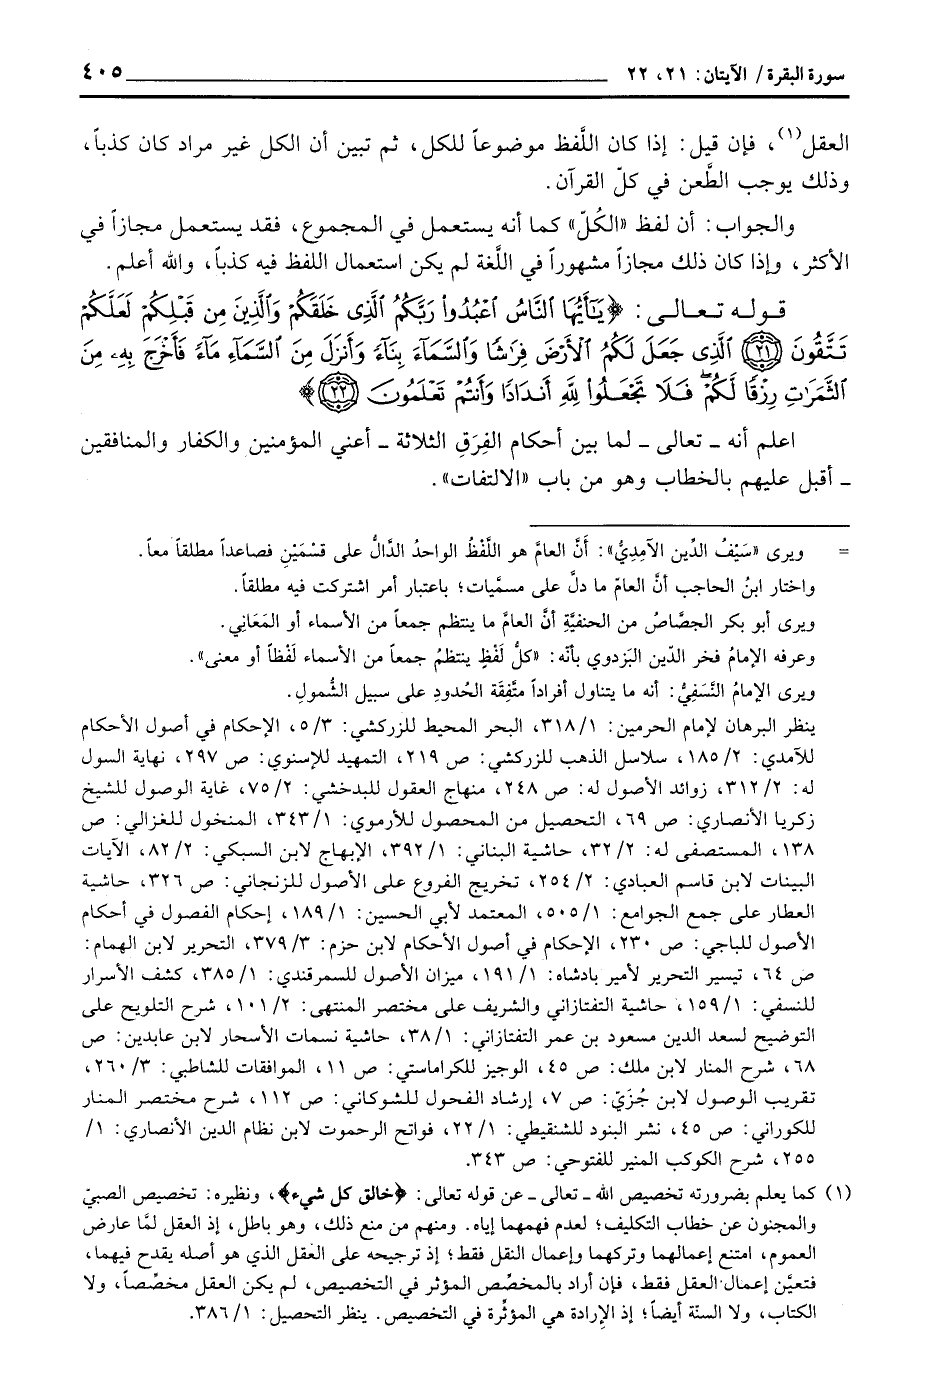 سورة البقرة / الآيتان: ٢١، ٢٢ ٤٠٥
العقل(١)، فإن قيل: إذا كان اللَّفظ موضوعاً للكل، ثم تبين أن الكل غير مراد كان كذباً،
وذلك يوجب الطَّعن في كلّ القرآن.
والجواب: أن لفظ «الكُلّ» كما أنه يستعمل في المجموع، فقد يستعمل مجازاً في
الأكثر، وإذا كان ذلك مجازاً مشهوراً في اللَّغة لم يكن استعمال اللفظ فيه كذباً، والله أعلم.
قوله تعالى: ﴿يَٰٓأَيُّهَا النَّاسُ اعْبُدُوا۟ رَبَّكُمُ الَّذِى خَلَقَكُمْ وَالَّذِينَ مِن قَبْلِكُمْ لَعَلَّكُمْ
تَتَّقُونَ ۝٢١ الَّذِى جَعَلَ لَكُمُ الْأَرْضَ فِرَٰشًا وَالسَّمَآءَ بِنَآءً وَأَنزَلَ مِنَ السَّمَآءِ مَآءً فَأَخْرَجَ بِهِۦ مِنَ
الثَّمَرَٰتِ رِزْقًا لَّكُمْ ۖ فَلَا تَجْعَلُوا۟ لِلَّهِ أَندَادًا وَأَنتُمْ تَعْلَمُونَ ۝٢٢﴾
اعلم أنه ـ تعالى ـ لما بين أحكام الفِرَقِ الثلاثة ـ أعني المؤمنين والكفار والمنافقين
ـ أقبل عليهم بالخطاب وهو من باب «الالتفات».
= ويرى «سَيْفُ الدِّين الآمِدِيُّ»: أَنَّ العامَّ هو اللَّفْظُ الواحدُ الدَّالُّ على قِسْمَيْنِ فصاعداً مطلقاً معاً.
واختار ابنُ الحاجب أنَّ العامّ ما دلَّ على مسمَّيات؛ باعتبار أمر اشتركت فيه مطلقاً.
ويرى أبو بكر الجصَّاصُ من الحنفيَّةِ أنَّ العامَّ ما ينتظم جمعاً من الأسماء أو المَعَانِي.
وعرفه الإمامُ فخر الدّين البَزدوي بأنّه: «كلُّ لَفْظٍ ينتظمُ جمعاً من الأسماء لَفْظاً أو معنى».
ويرى الإمامُ النَّسَفِيُّ: أنه ما يتناول أفراداً متَّفِقَة الحُدودِ على سبيل الشُّمولِ.
ينظر البرهان لإمام الحرمين: ٣١٨/١، البحر المحيط للزركشي: ٥/٣، الإحكام في أصول الأحكام
للآمدي: ١٨٥/٢، سلاسل الذهب للزركشي: ص ٢١٩، التمهيد للإسنوي: ص ٢٩٧، نهاية السول
له: ٣١٢/٢، زوائد الأصول له: ص ٢٤٨، منهاج العقول للبدخشي: ٧٥/٢، غاية الوصول للشيخ
زكريا الأنصاري: ص ٦٩، التحصيل من المحصول للأرموي: ٣٤٣/١، المنخول للغزالي: ص
١٣٨، المستصفى له: ٣٢/٢، حاشية البناني: ٣٩٢/١، الإبهاج لابن السبكي: ٨٢/٢، الآيات
البينات لابن قاسم العبادي: ٢٥٤/٢، تخريج الفروع على الأصول للزنجاني: ص ٣٢٦، حاشية
العطار على جمع الجوامع: ٥٠٥/١، المعتمد لأبي الحسين: ١٨٩/١، إحكام الفصول في أحكام
الأصول للباجي: ص ٢٣٠، الإحكام في أصول الأحكام لابن حزم: ٣٧٩/٣، التحرير لابن الهمام:
ص ٦٤، تيسير التحرير لأمير بادشاه: ١٩١/١، ميزان الأصول للسمرقندي: ٣٨٥/١، كشف الأسرار
للنسفي: ١٥٩/١، حاشية التفتازاني والشريف على مختصر المنتهى: ١٠١/٢، شرح التلويح على
التوضيح لسعد الدين مسعود بن عمر التفتازاني: ٣٨/١، حاشية نسمات الأسحار لابن عابدين: ص
٦٨، شرح المنار لابن ملك: ص ٤٥، الوجيز للكراماستي: ص ١١، الموافقات للشاطبي: ٢٦٠/٣،
تقريب الوصول لابن جُزَيّ: ص ٧، إرشاد الفحول للشوكاني: ص ١١٢، شرح مختصر المنار
للكوراني: ص ٤٥، نشر البنود للشنقيطي: ٢٢/١، فواتح الرحموت لابن نظام الدين الأنصاري: ١/
٢٥٥، شرح الكوكب المنير للفتوحي: ص ٣٤٣.
(١) كما يعلم بضرورته تخصيص الله ـ تعالى ـ عن قوله تعالى: ﴿خالق كل شيء﴾، ونظيره: تخصيص الصبيّ
والمجنون عن خطاب التكليف؛ لعدم فهمهما إياه. ومنهم من منع ذلك، وهو باطل، إذ العقل لمَّا عارض
العموم، امتنع إعمالهما وتركهما وإعمال النقل فقط؛ إذ ترجيحه على العقل الذي هو أصله يقدح فيهما،
فتعيَّن إعمال العقل فقط، فإن أراد بالمخصِّص المؤثر في التخصيص، لم يكن العقل مخصِّصاً، ولا
الكتاب، ولا السنّة أيضاً؛ إذ الإرادة هي المؤثِّرة في التخصيص. ينظر التحصيل: ٣٨٦/١.